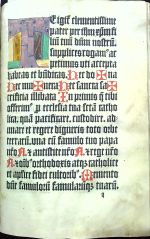 E igit clementissime
pater per ihm xpm fi
liū tuū dnm nostrū
supplices rogam⁹ ac
petimus uti accepta
habeas et bn̄dicas. Hec do✠na
Hec mu✠nera Hec sancta sa✠cri
ficia illibata. In primis q̄ tibi
offerim⁹. p̄ ecclesia tua sctā catho
lica. quā pacificare. custodire. ad
unare et regere digneris toto orbe
terrarū. una cū famulo tuo papa
nr̄o N. et antistite nr̄o N. et rege nr̄o
N. et oīb⁹ orthodoxis atq̄z catholice
et aplice fidei cultorib⁹. Memento
dn̄e famulorū famularūq̄ tuarū.